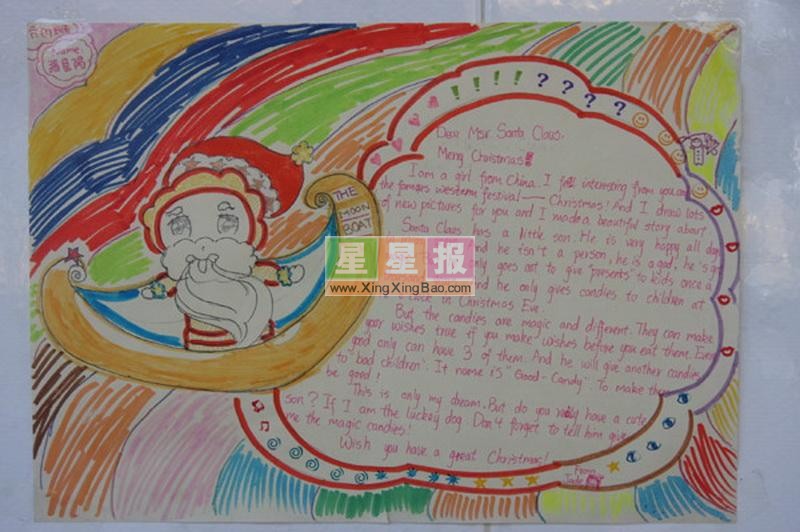 Name
THE
MOON
BOAT
! ! ! ! ? ? ? ?
Dear Msr Santa Claus,
Merry Christmas!
I am a girl from China. I fell interesting from you and
the famous western festival — Christmas! And I draw lots
of new pictures for you and I made a beautiful story about
Santa Claus has a little son. He is very happy all day
and he isn't a person, he is a god, he's
only goes out to give "presents" to kids once a
and he only gives candies to children at
o'clock in Christmas Eve.
But the candies are magic and different. They can make
your wishes true if you make wishes before you eat them. Every
good only can have 3 of them. And he will give another candies
to "bad children". It name is "Good-Candy" To make them
be good!
This is only my dream. But do you really have a cute
son? If I am the luckey dog. Don't forget to tell him give
me the magic candies!
Wish you have a great Christmas!
From
Jade
星星报
www.XingXingBao.com